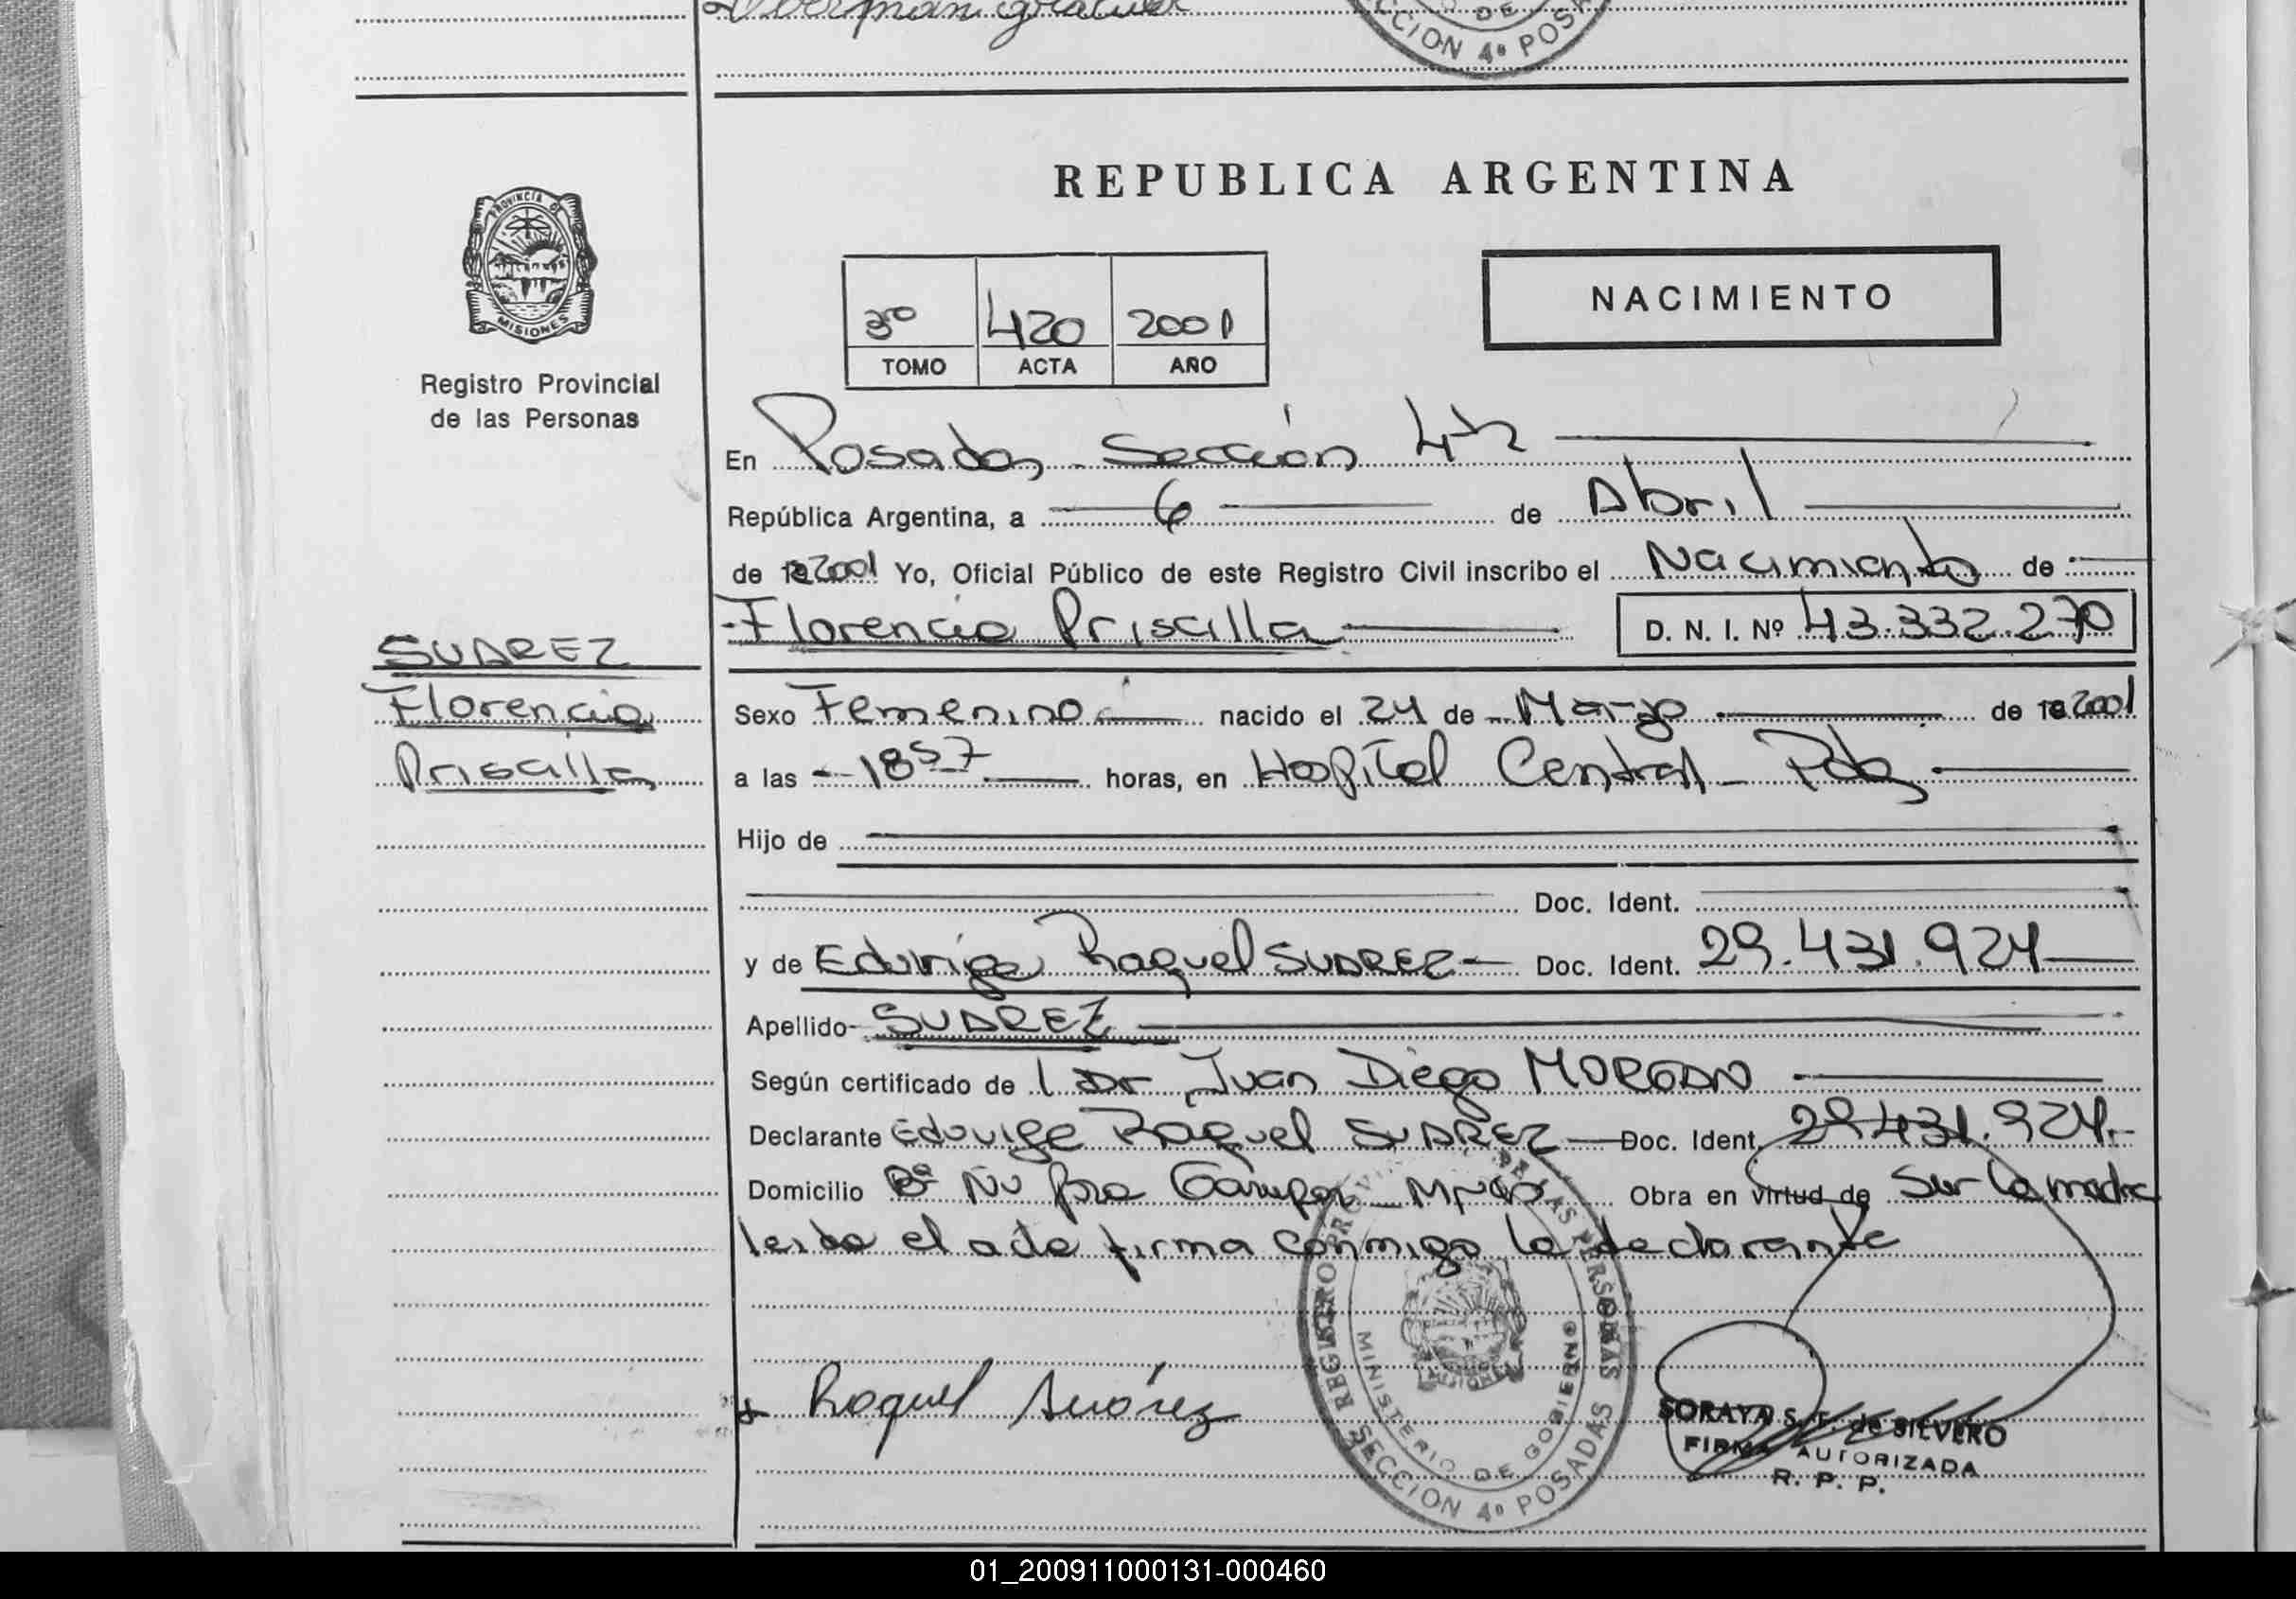 CCION 4º POSA
DE
PROVINCIA DE
MISIONES
Registro Provincial
de las Personas
REPUBLICA ARGENTINA
3º 420 2001
TOMO ACTA AÑO
NACIMIENTO
En Posadas Sección 4ta
República Argentina, a 6 de Abril
de 2001 Yo, Oficial Público de este Registro Civil inscribo el Nacimiento de
Florencia Priscilla D. N. I. Nº 43.332.270
SUAREZ
Florencia
Priscilla
Sexo Femenino nacido el 24 de Marzo de 2001
a las 18 57 horas, en Hospital Central - Pdas
Hijo de
Doc. Ident.
y de Eduvige Raquel SUAREZ Doc. Ident. 29.431.924
Apellido SUAREZ
Según certificado de Dr Juan Diego
Declarante Eduvige Raquel SUAREZ Doc. Ident. 29.431.924.
Domicilio Bº Obra en virtud de Ser la madre
leida el acta firma conmigo la declarante
Raquel Suárez
REGISTRO PROVINCIAL DE LAS PERSONAS
MINISTERIO DE GOBIERNO
SECCION 4º POSADAS
SORAYA S. F. de SILVERO
FIRMA AUTORIZADA
R. P. P.
01_200911000131-000460